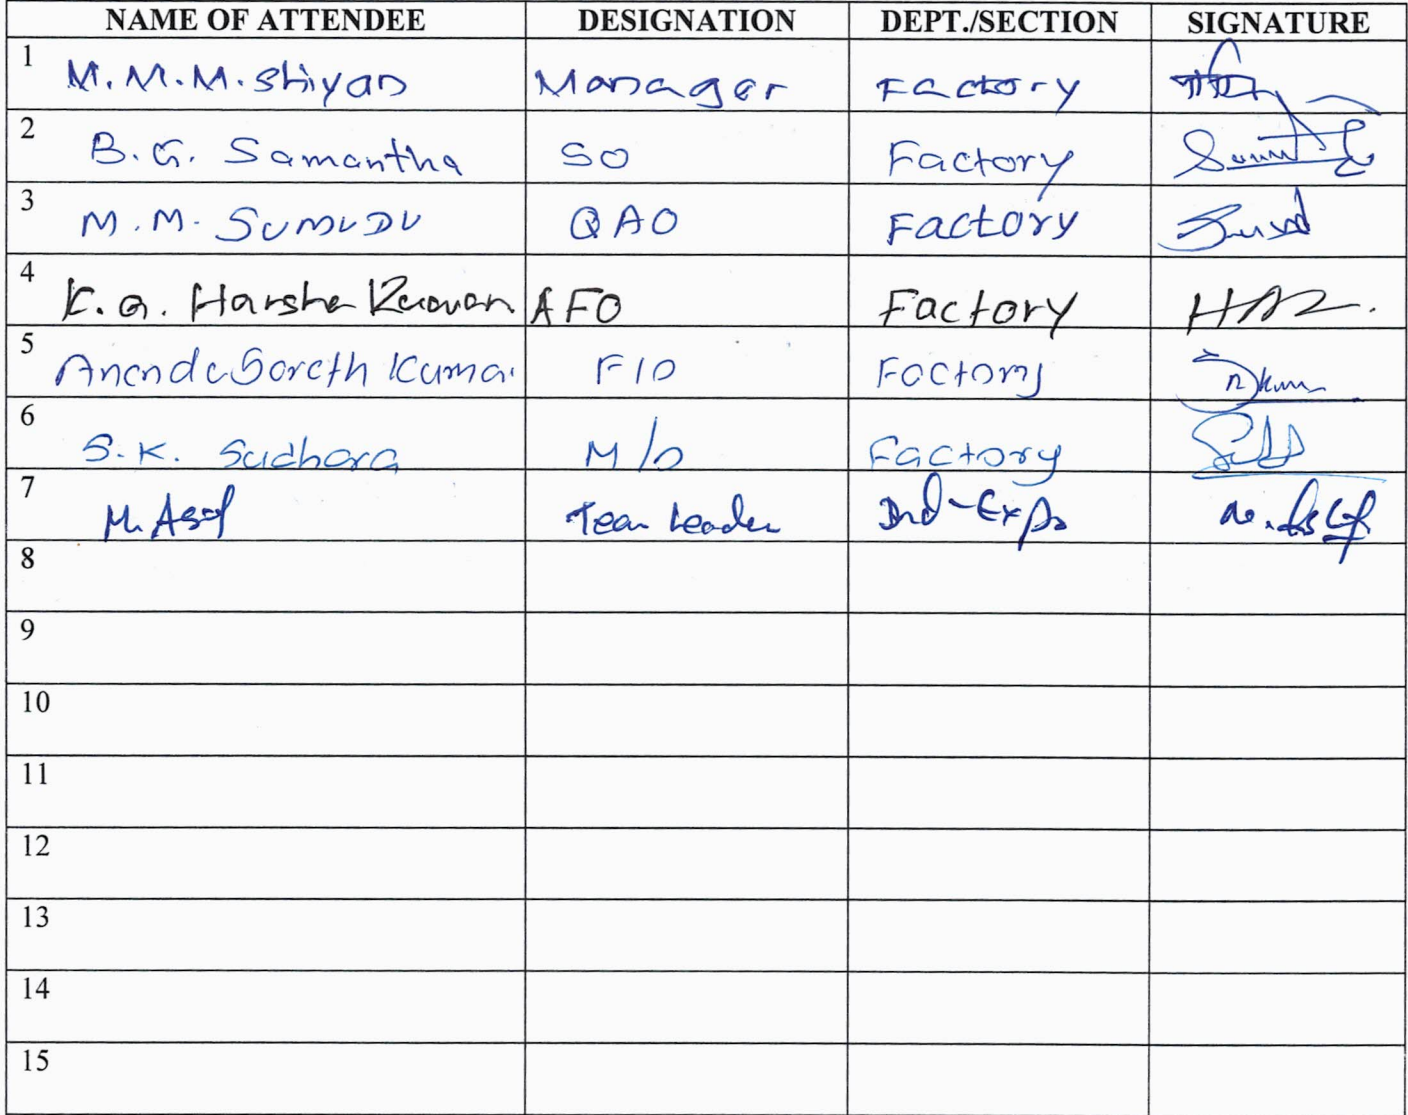 NAME OF ATTENDEE DESIGNATION DEPT./SECTION SIGNATURE
1 M.M.M. Shiyan Manager Factory
2 B.G. Samantha SO Factory
3 M.M. SUMUDU QAO Factory
4 K.G. Harsha AFO Factory
5 Kumar F10 Factory
6 S.K. Sudhara M/O Factory
7 M. Asof Team Leader Ind-Expo
8
9
10
11
12
13
14
15